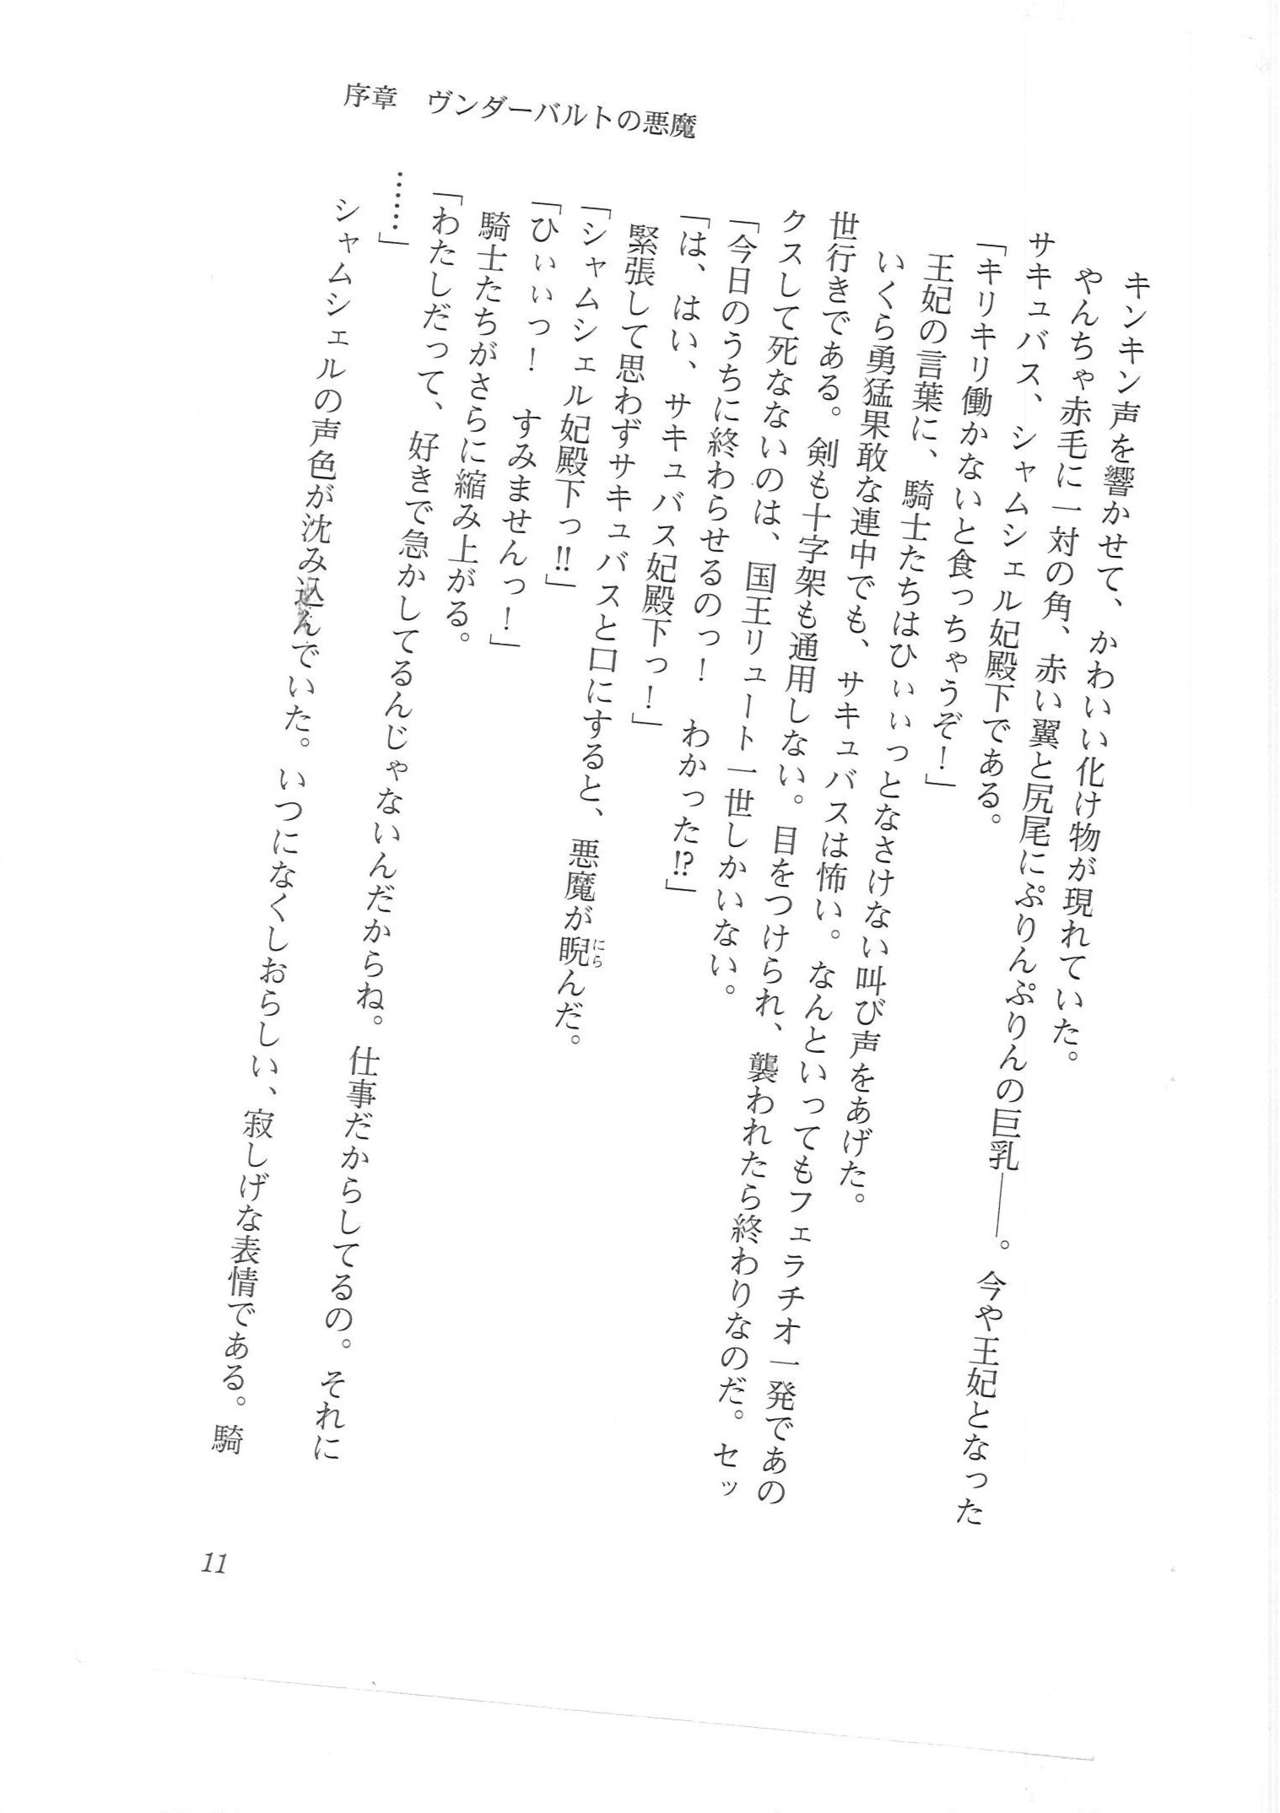 序章　ヴンダーバルトの悪魔
キンキン声を響かせて、かわいい化け物が現れていた。
やんちゃ赤毛に一対の角、赤い翼と尻尾にぷりんぷりんの巨乳――。今や王妃となった
サキュバス、シャムシェル妃殿下である。
「キリキリ働かないと食っちゃうぞ！」
王妃の言葉に、騎士たちはひぃぃっとなさけない叫び声をあげた。
いくら勇猛果敢な連中でも、サキュバスは怖い。なんといってもフェラチオ一発であの
世行きである。剣も十字架も通用しない。目をつけられ、襲われたら終わりなのだ。セッ
クスして死なないのは、国王リュート一世しかいない。
「今日のうちに終わらせるのっ！　わかった!?」
「は、はい、サキュバス妃殿下っ！」
緊張して思わずサキュバスと口にすると、悪魔が睨んだ。
にら
「シャムシェル妃殿下っ!!」
「ひぃぃっ！　すみませんっ！」
騎士たちがさらに縮み上がる。
「わたしだって、好きで急かしてるんじゃないんだからね。仕事だからしてるの。それに
……」
シャムシェルの声色が沈み込んでいた。いつになくしおらしい、寂しげな表情である。騎
11